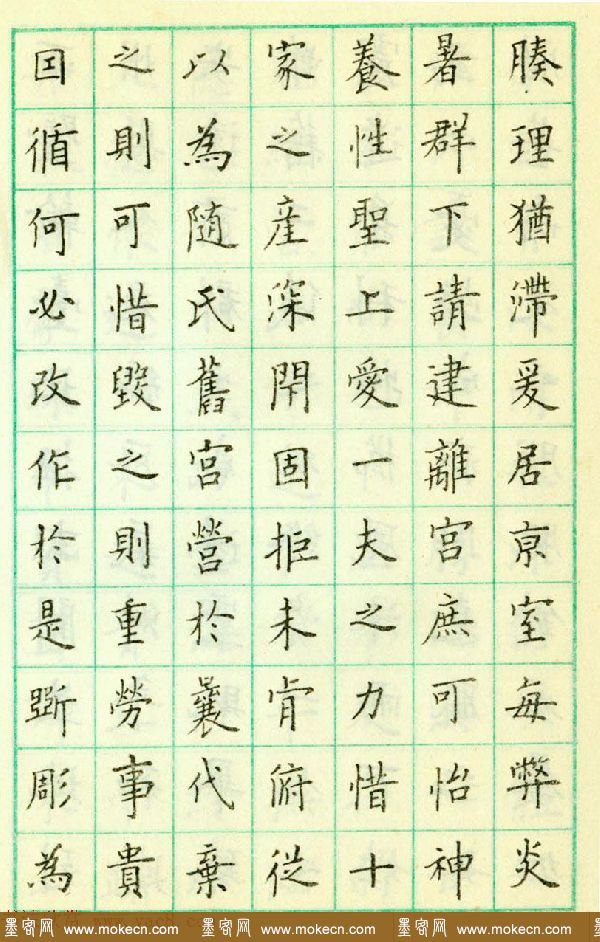 腠理猶滯爰居亰室每弊炎
暑群下請建離宮庶可怡神
養性聖上愛一夫之力惜十
家之産深閇固拒未肯俯從
以為随氏舊宮營於曩代棄
之則可惜毀之則重勞事貴
囙循何必改作於是斲彫為
墨客网 www.mokecn.com 墨客网 www.mokecn.com 墨客网 www.mokecn.com 墨客网